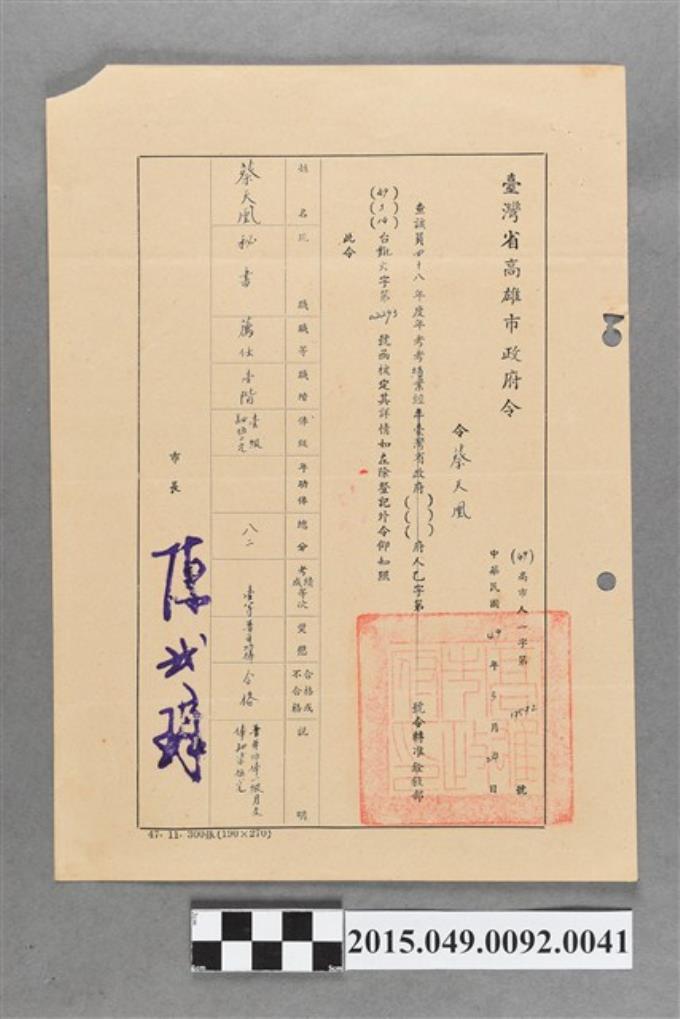 臺灣省高雄市政府令
(49)高市人一字第 號
中華民國49年5月24日
令蔡天鳳
查該員四十八年度年考考績業經奉臺灣省政府 府人乙字第 號令轉准銓敍部
(49)(5)(14)台甄六字第 號函核定其詳情如左除登記外令仰知照
此令
姓名
現職
職等
職階
俸級
年功俸
總分
考績成績等次
獎懲
合格或不合格
說明
蔡天鳳
秘書
薦任
壹階
壹級
八二
合格
市長
陳武璋
47. 11. 300張(190×270)
2015.049.0092.0041